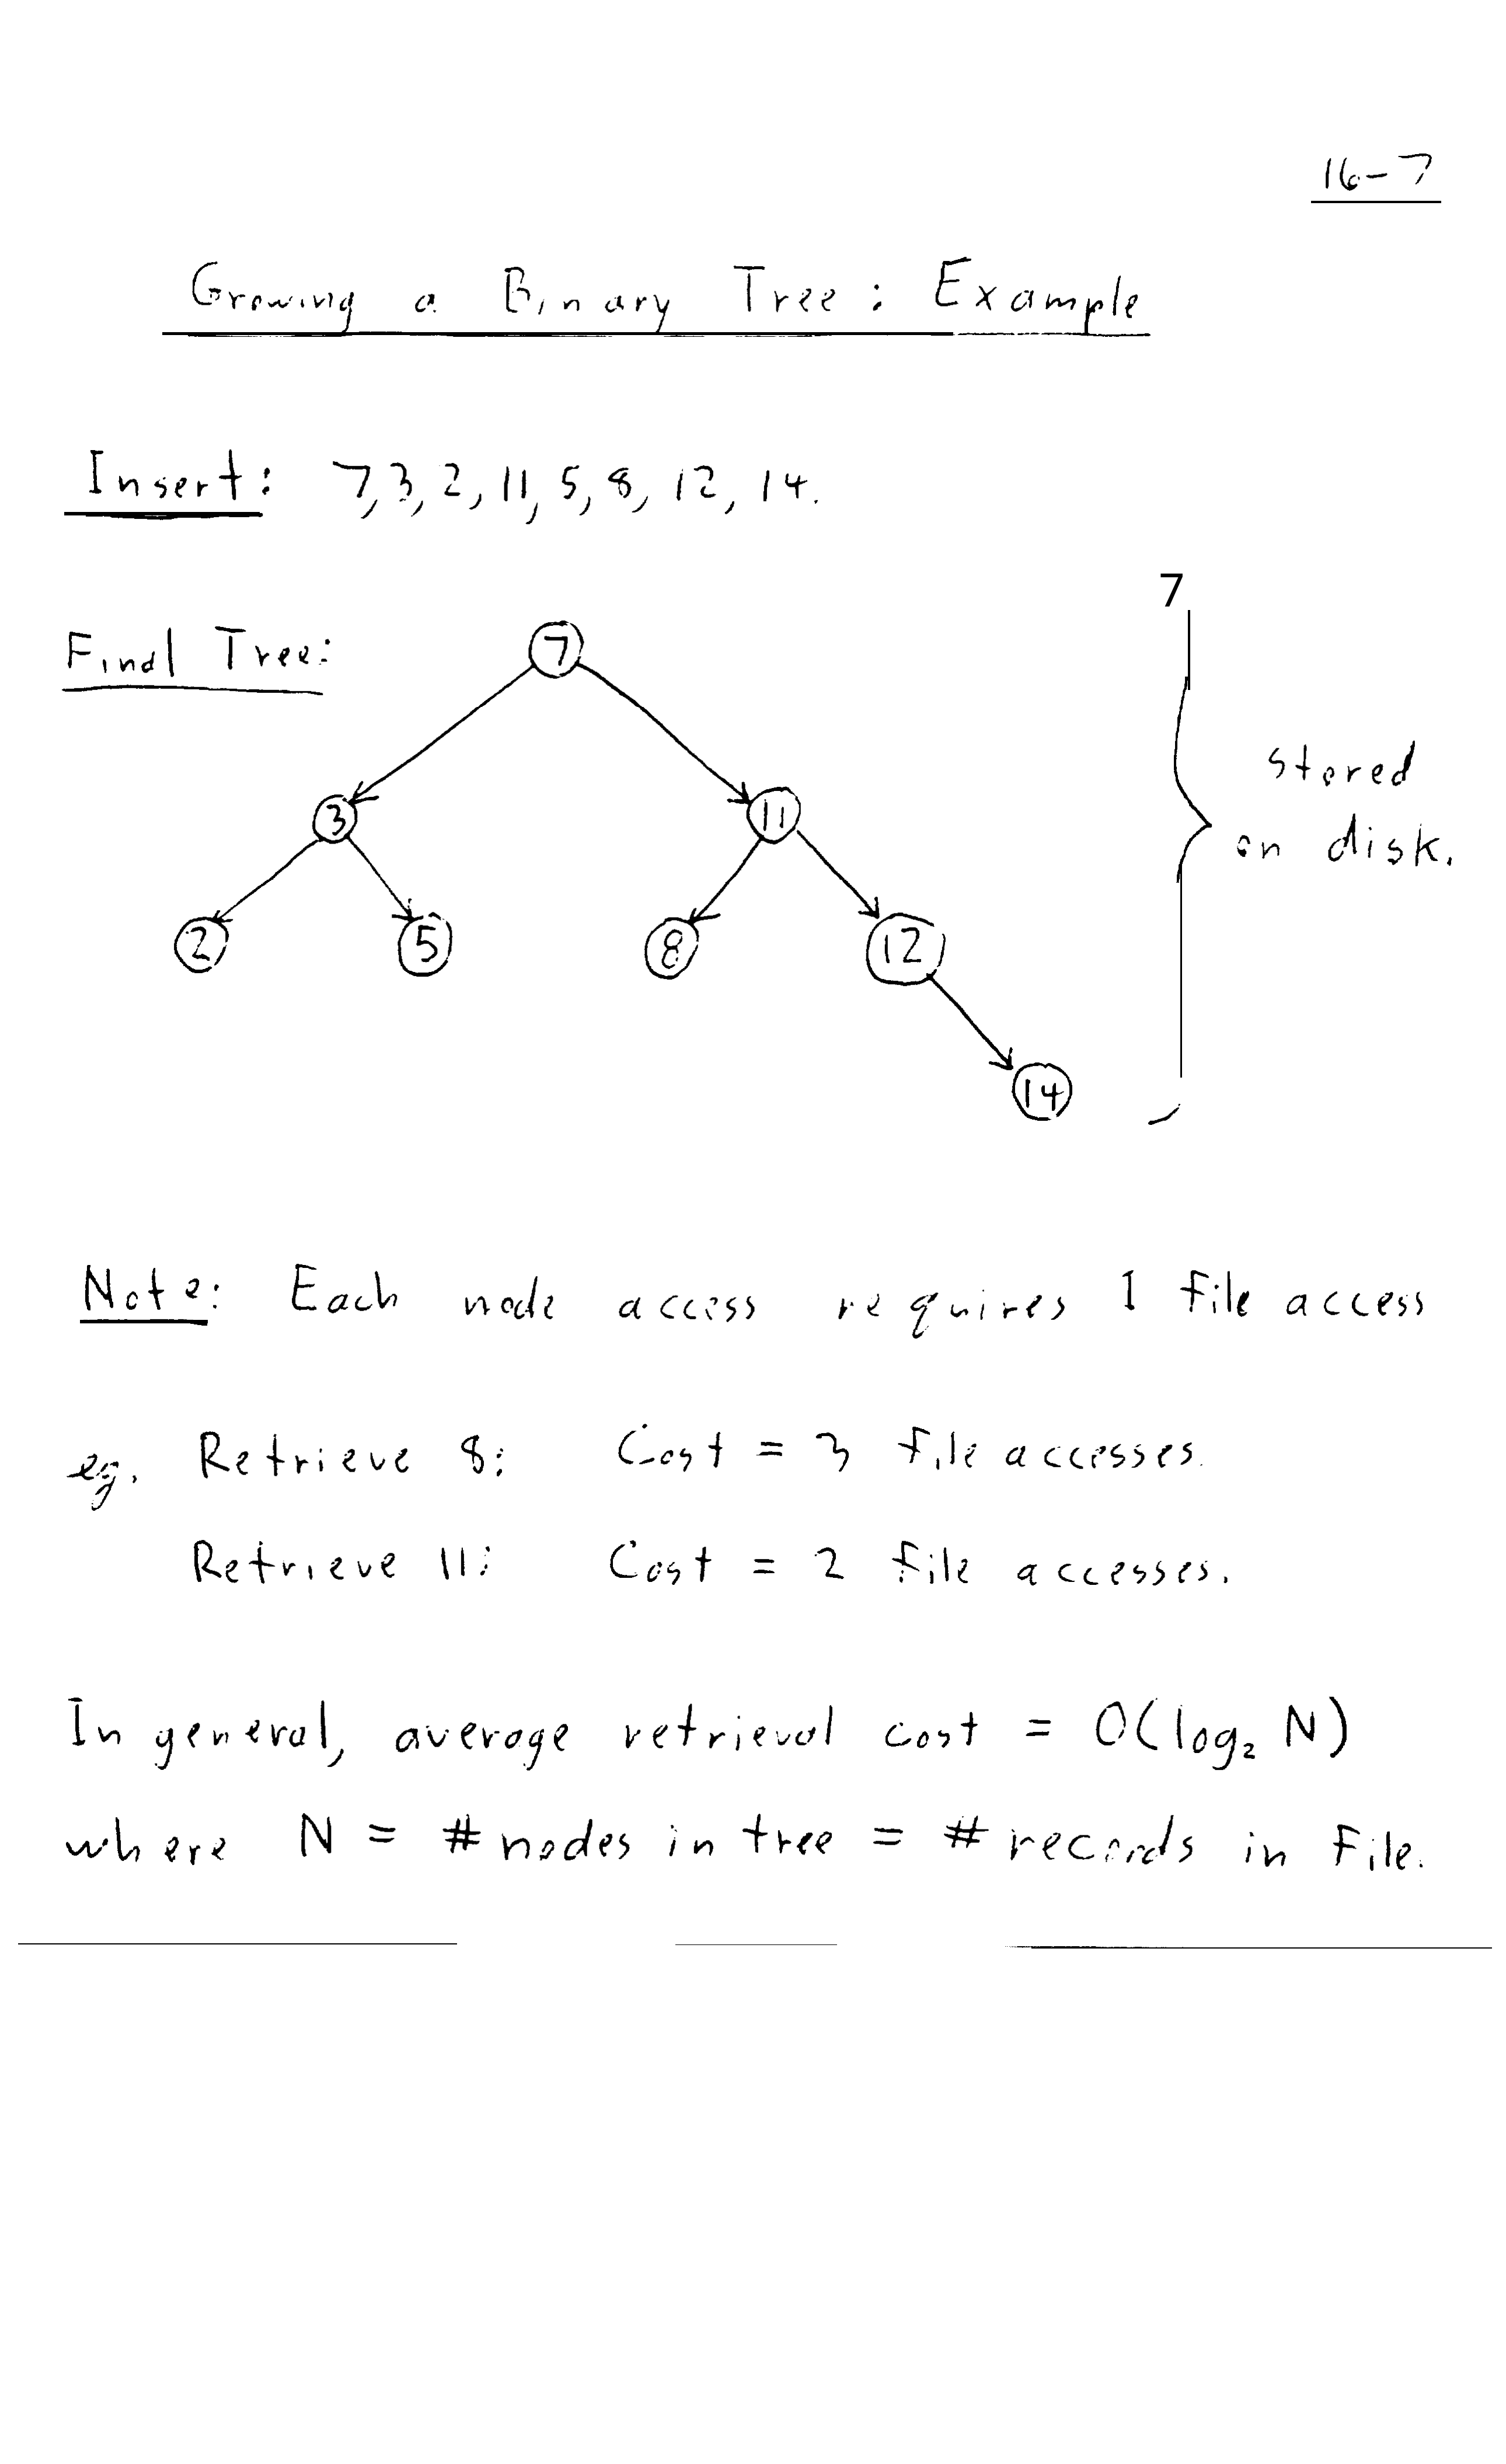 16-7
Growing a Binary Tree: Example
Insert: 7, 3, 2, 11, 5, 8, 12, 14.
7
Final Tree:
7
3
11
stored
on disk.
2
5
8
12
14
Note: Each node access requires 1 file access
eg. Retrieve 8: Cost = 3 file accesses.
Retrieve 11: Cost = 2 file accesses.
In general, average retrieval cost = O(log₂ N)
where N = # nodes in tree = # records in file.